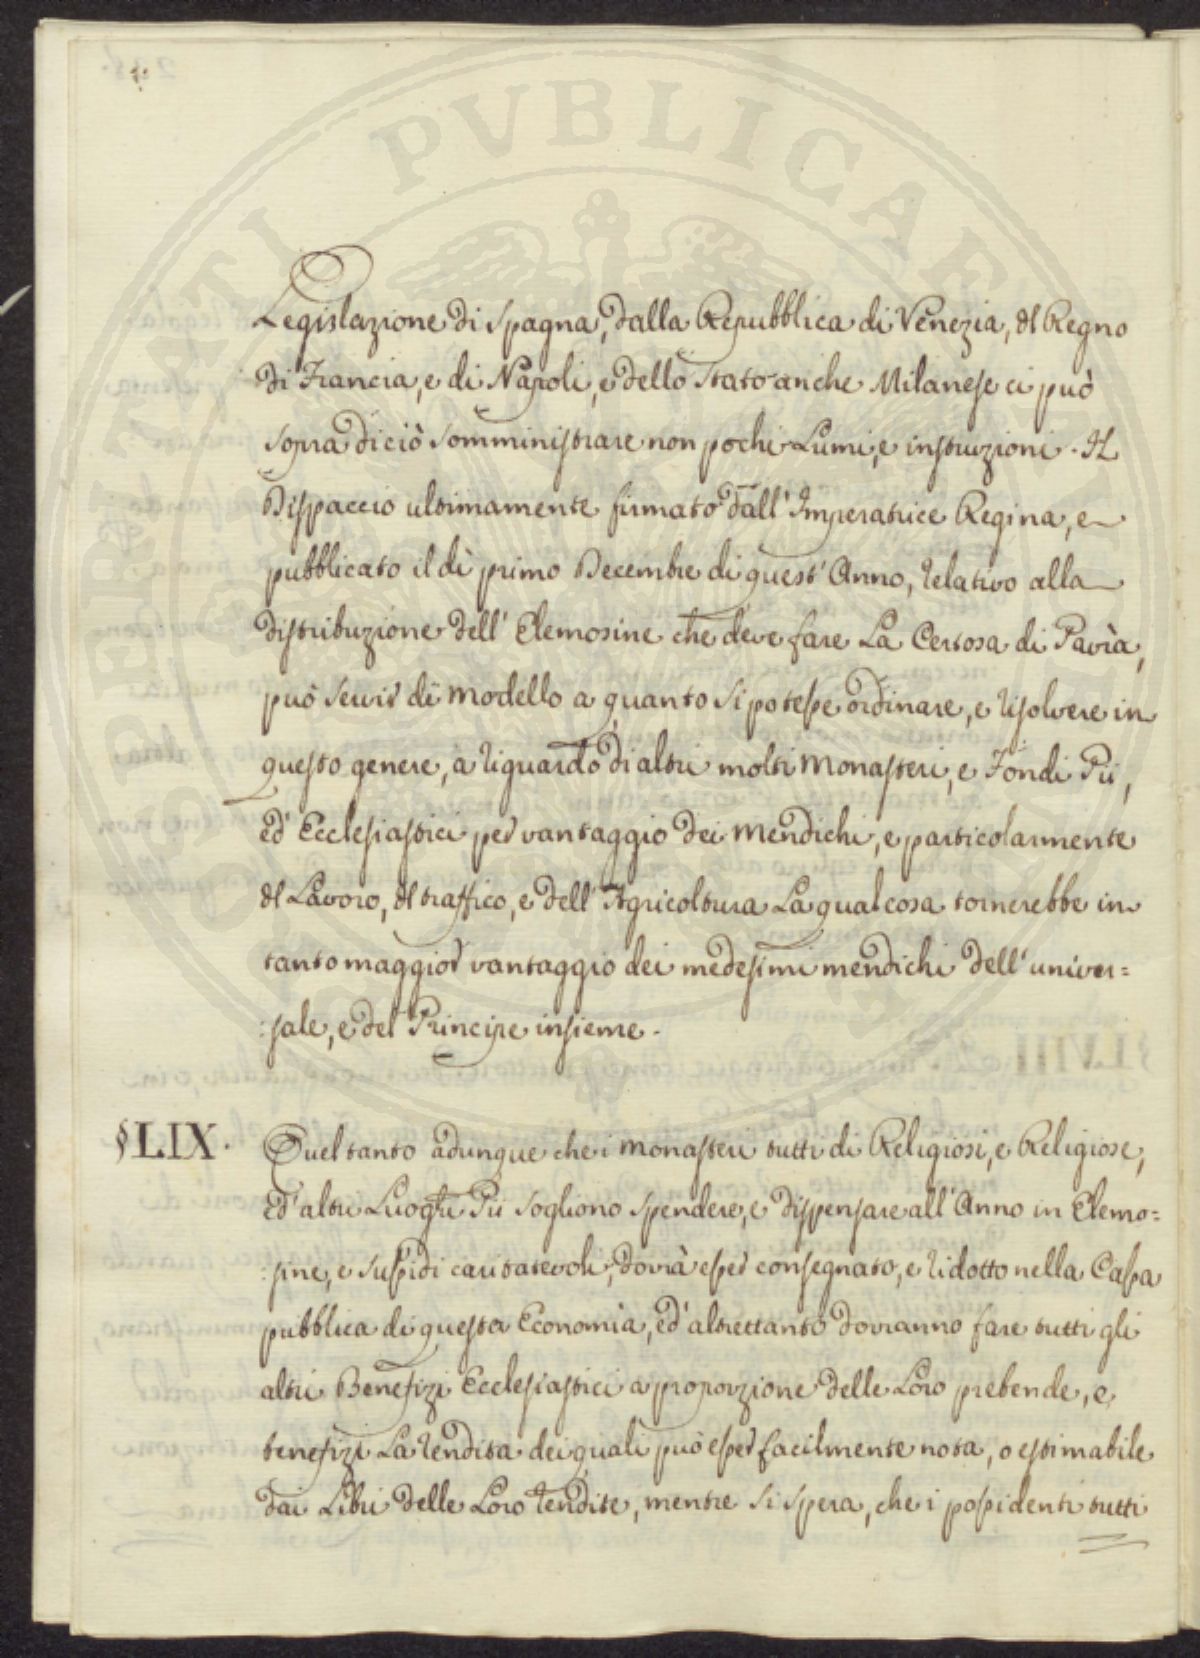 PROSPERITATI PVBLICAE AVGENDAE
Legislazione di Spagna, dalla Repubblica di Venezia, del Regno
di Francia, e di Napoli, e dello Stato anche Milanese ci può
sopra di ciò somministrare non pochi Lumi, e instruzioni. Il
Dispaccio ultimamente firmato dall' Imperatrice Regina, e
pubblicato il dì primo Decembre di quest' Anno, relativo alla
distribuzione dell' Elemosine che deve fare La Certosa di Pavìa,
può servir di modello a quanto si potesse ordinare, e risolvere in
questo genere, a riguardo di altri molti Monasteri, e Fondi Pii,
ed Ecclesiastici per vantaggio dei Mendichi, e particolarmente
del Lavoro, del traffico, e dell' Agricoltura La qual cosa tornerebbe in
tanto maggior vantaggio dei medesimi mendichi dell' univer=
:sale, e del Principe insieme.
§LIX. Quel tanto adunque che i Monasteri tutti di Religiosi, e Religiose,
ed altri Luoghi Pii sogliono spendere, e dispensare all' Anno in Elemo=
:sine, e sussidi caritatevoli, dovrà esser consegnato, e ridotto nella Cassa
pubblica di questa Economìa, ed altrettanto dovranno fare tutti gli
altri Benefizi Ecclesiastici a proporzione delle Loro prebende, e
benefizi La rendita dei quali può esser facilmente nota, o estimabile
dai Libri delle Loro rendite, mentre si spera, che i possidenti tutti